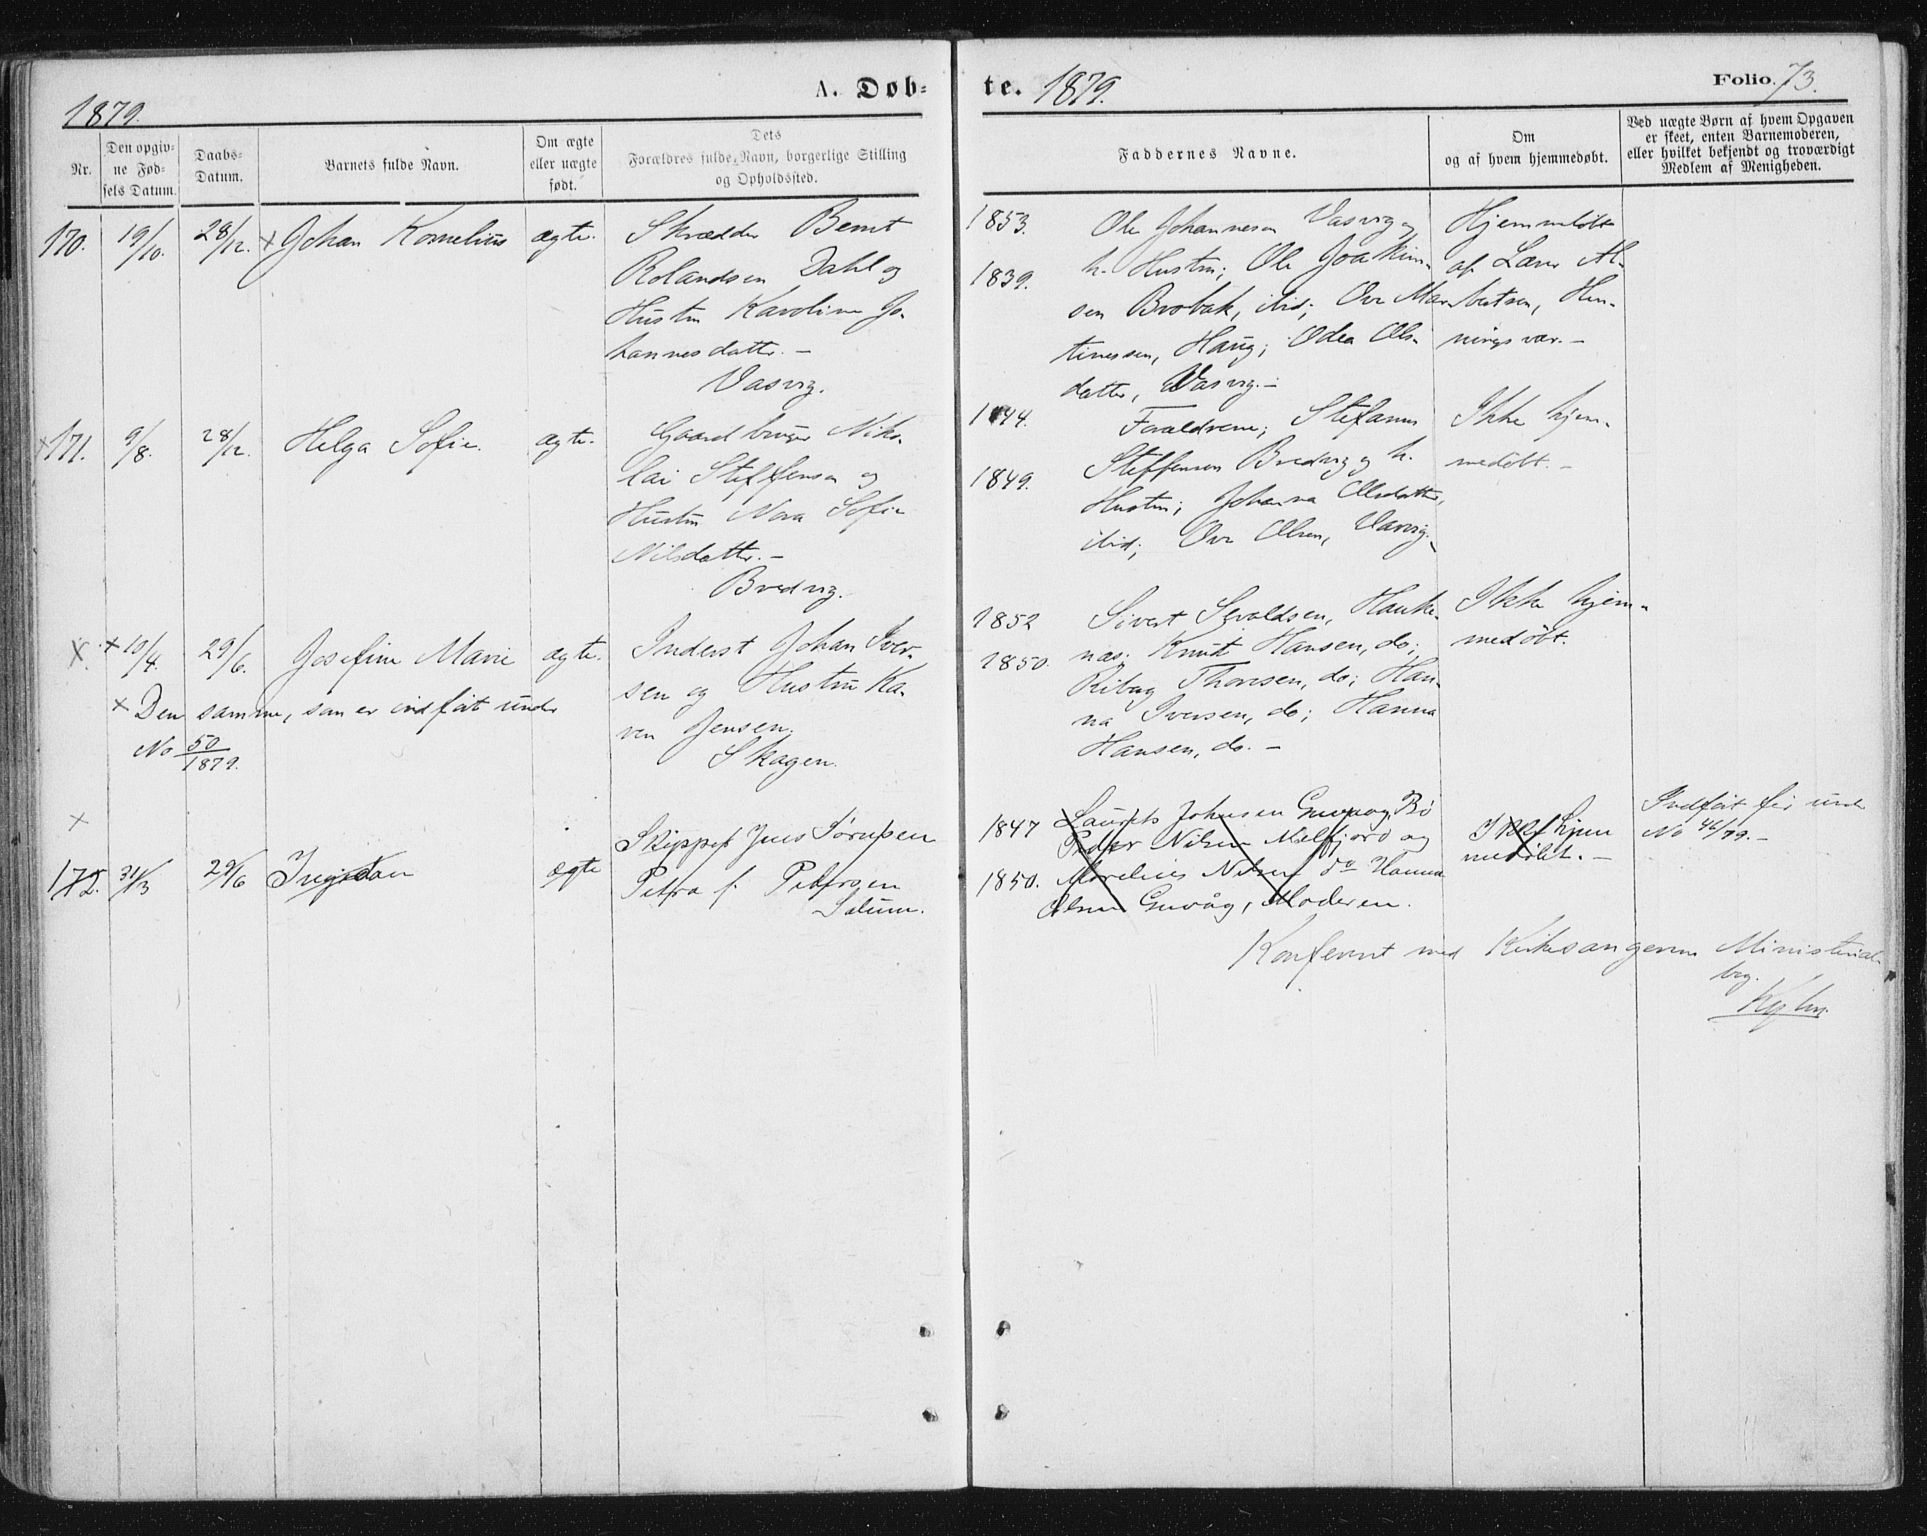 1879.
A. Døb-
te. 1879.
Folio. 73.
Nr.
Den opgiv-
ne Fød-
sels Datum.
Daabs-
Datum.
Barnets fulde Navn.
Om ægte
eller uægte
født.
Dets
Forældres fulde Navn, borgerlige Stilling
og Opholdssted.
Faddernes Navne.
Om
og af hvem hjemmedøbt.
Ved uægte Børn af hvem Opgaven
er skeet, enten Barnemoderen,
eller hvilket bekjendt og troværdigt
Medlem af Menigheden.
170. 19/10. 28/12. x Johan Kornelius ægte.
Skrædder Bernt
Rolandsen Dahl og
Hustru Karoline Jo-
hannesdatter. –
Vasvig.
1853.
1839.
Ole Johannesen Vasvig og
h. Hustru; Ole Joakim-
sen Brobak, ibid; Ove Mar-
tinessen, Haug; Odea Ols-
datter, Vasvig. –
Hjemmedøbt
af Lærer Al-
bertsen, Hen-
ningsvær. –
x 171. 9/8. 28/12. Helga Sofie. ægte.
Gaardbruger Niko-
lai Steffensen og
Hustru Nora Sofie
Nilsdatter. –
Bredvig.
1844.
1849.
Forældrene; Stefanus
Steffensen Bredvig og h.
Hustru; Johanna Olsdatter,
ibid; Ove Olsen, Vasvig. –
Ikke hjem-
medøbt. –
x. + 10/4. 29/6. Josefine Marie ægte.
x Den samme, som er indført under
No 50/1879.
Inderst Johan Iver-
sen og Hustru Ka-
ren Jensen.
Skagen.
1852
1850.
Sivert Sevaldsen, Hauke-
næs; Knut Hansen, do;
Thoresen, do; Han-
na Iversen, do; Hanna
Hansen, do. –
Ikke hjem-
medøbt.
x
172. 31/3 29/6 ægte
Skipper Jens Sørupsen
Petra f. Pedersen
Solum.
1847
1850.
Laurits Johnsen Guvaag, Bø
Peder Nilsen Melfjord og
Nilsen do Hanna
Olsen Guvåg, Moderen.
Ikke hjem
medøbt. –
Indført før under
No 46/79. –
Konfereret med Kirkesangerens Ministerial-
bog.